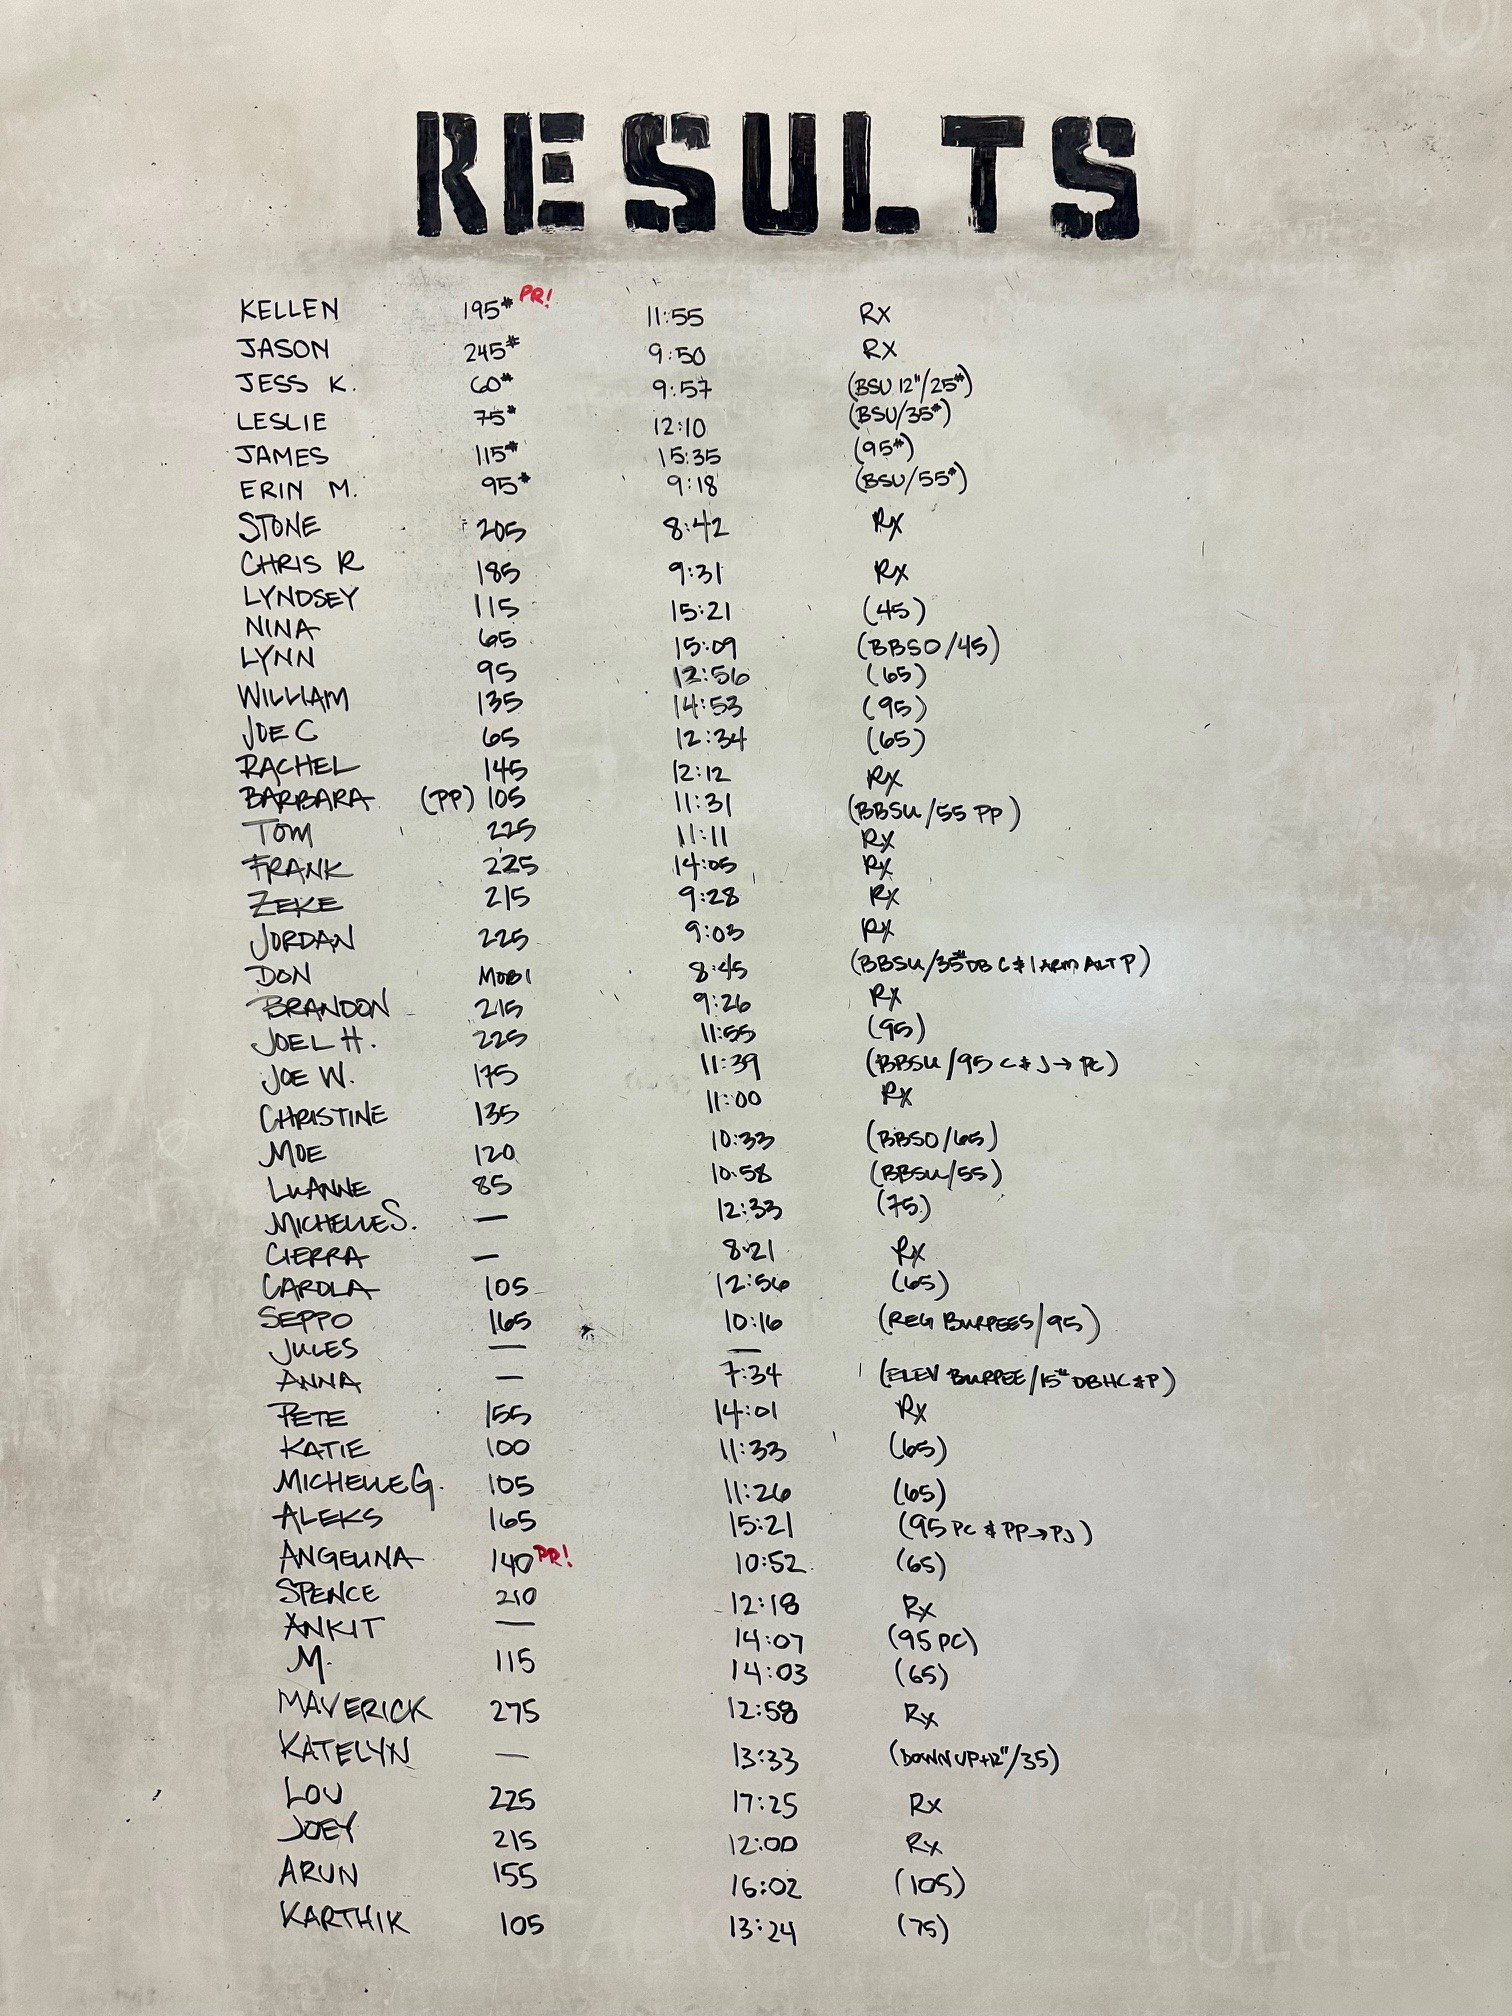 RESULTS
KELLEN 195# PR! 11:55 RX
JASON 245# 9:50 RX
JESS K. 60# 9:57 (BSU 12"/25#)
LESLIE 75# 12:10 (BSU/35#)
JAMES 115# 15:35 (95#)
ERIN M. 95# 9:18 (BSU/55#)
STONE 205 8:42 Rx
CHRIS R 185 9:31 Rx
LYNDSEY 115 15:21 (45)
NINA 65 15:09 (BBSO/45)
LYNN 95 12:56 (65)
WILLIAM 135 14:53 (95)
JOE C 65 12:34 (65)
RACHEL 145 12:12 Rx
BARBARA (PP) 105 11:31 (BBSU/55 PP)
TOM 225 11:11 Rx
FRANK 225 14:05 Rx
ZEKE 215 9:28 Rx
JORDAN 225 9:03 Rx
DON MOBI 8:45 (BBSU/35# DB C & 1 ARM ALT P)
BRANDON 215 9:26 Rx
JOEL H. 225 11:55 (95)
JOE W. 175 11:39 (BBSU/95 C & J → PC)
CHRISTINE 135 11:00 Rx
MOE 120 10:33 (BBSO/65)
LUANNE 85 10:58 (BBSU/55)
MICHELLE S. — 12:33 (75)
CIERRA — 8:21 Rx
CAROLA 105 12:56 (65)
SEPPO 165 10:16 (REG BURPEES/95)
JULES — —
ANNA — 7:34 (ELEV BURPEE/15# DB HC & P)
PETE 155 14:01 Rx
KATIE 100 11:33 (65)
MICHELLE G. 105 11:26 (65)
ALEKS 165 15:21 (95 PC & PP → PJ)
ANGELINA 140 PR! 10:52 (65)
SPENCE 210 12:18 Rx
ANKIT — 14:07 (95 PC)
M. 115 14:03 (65)
MAVERICK 275 12:58 Rx
KATELYN — 13:33 (DOWN UP+12"/35)
LOU 225 17:25 Rx
JOEY 215 12:00 Rx
ARUN 155 16:02 (105)
KARTHIK 105 13:24 (75)
JACK BULGER